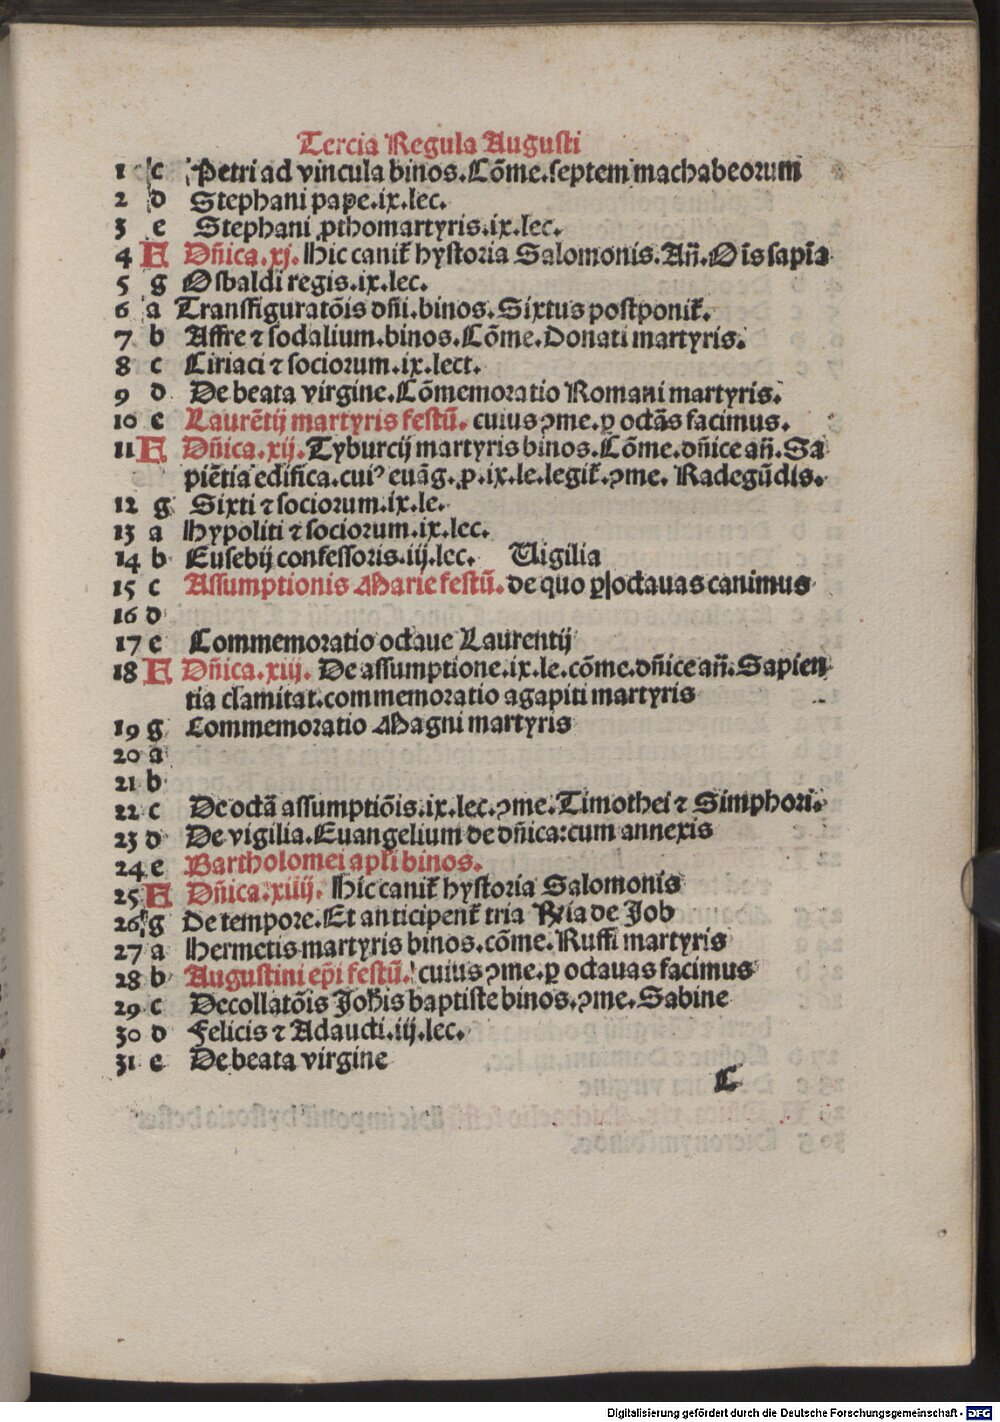 Tercia Regula Augusti
1 c Petri ad vincula binos. Cōme. septem machabeorum
2 d Stephani pape. ix. lec.
3 e Stephani ꝓthomartyris. ix. lec.
4 F Dn̄ica. xj. Hic canit᷑ hystoria Salomonis. An̄. Oīs sapīa
5 g Osbaldi regis. ix. lec.
6 a Transfiguratōis dn̄i. binos. Sixtus postponit᷑.
7 b Affre ⁊ sodalium. binos. Cōme. Donati martyris.
8 c Ciriaci ⁊ sociorum. ix. lect.
9 d De beata virgine. Cōmemoratio Romani martyris.
10 e Laurētij martyris festū. cuius ꝯme. ꝑ octās facimus.
11 F Dn̄ica. xij. Tyburcij martyris binos. Cōme. dn̄ice an̄. Sa
piētia edifica. cuiꝰ euāg. ꝓ. ix. le. legit᷑. ꝯme. Radegūdis.
12 g Sixti ⁊ sociorum. ix. le.
13 a Hypoliti ⁊ sociorum. ix. lec.
14 b Eusebij confessoris. iij. lec. Uigilia
15 c Assumptionis Marie festū. de quo ꝑ octauas canimus
16 d
17 e Commemoratio octaue Laurentij
18 F Dn̄ica. xiij. De assumptione. ix. le. cōme. dn̄ice an̄. Sapien
tia clamitat. commemoratio agapiti martyris
19 g Commemoratio Magni martyris
20 a
21 b
22 c De octā assumptiōis. ix. lec. ꝯme. Timothei ⁊ Simphori.
23 d De vigilia. Euangelium de dn̄ica: cum annexis
24 e Bartholomei apl̄i binos.
25 F Dn̄ica. xiiij. Hic canit᷑ hystoria Salomonis
26 g De tempore. Et anticipent᷑ tria R̄ia de Job
27 a Hermetis martyris binos. cōme. Ruffi martyris
28 b Augustini ep̄i festū. cuius ꝯme. ꝑ octauas facimus
29 c Decollatōis Joh̄is baptiste binos. ꝯme. Sabine
30 d Felicis ⁊ Adaucti. iij. lec.
31 e De beata virgine
C
Digitalisierung gefördert durch die Deutsche Forschungsgemeinschaft - DFG